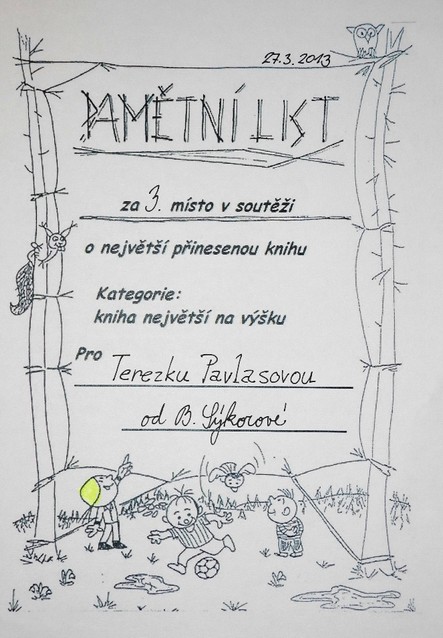 27.3.2013
PAMĚTNÍ LIST
za 3. místo v soutěži
o největší přinesenou knihu
Kategorie:
kniha největší na výšku
Pro Terezku Pavlasovou
od B. Sýkorové